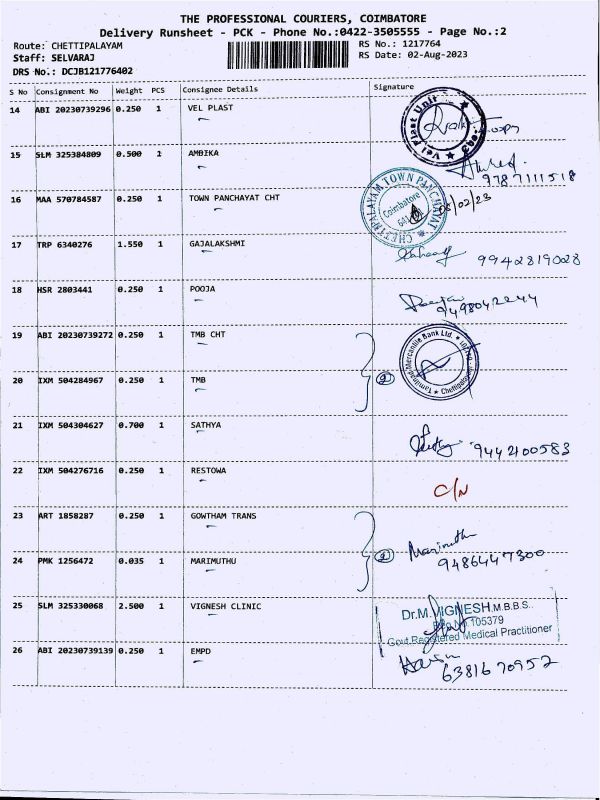 THE PROFESSIONAL COURIERS, COIMBATORE
Delivery Runsheet - PCK - Phone No.:0422-3505555 - Page No.:2
Route: CHETTIPALAYAM RS No.: 1217764
Staff: SELVARAJ RS Date: 02-Aug-2023
DRS No.: DCJB121776402
S No Consignment No Weight PCS Consignee Details Signature
14 ABI 20230739296 0.250 1 VEL PLAST Vel Plast Unit
15 SLM 325384809 0.500 1 AMBIKA
9787111518
16 MAA 570784587 0.250 1 TOWN PANCHAYAT CHT CHETTIPALAYAM TOWN PANCHAYAT Coimbatore
17 TRP 6340276 1.550 1 GAJALAKSHMI 9942819028
18 HSR 2803441 0.250 1 POOJA
19 ABI 20230739272 0.250 1 TMB CHT Tamilnad Mercantile Bank Ltd.
20 IXM 504284967 0.250 1 TMB 2
21 IXM 504304627 0.700 1 SATHYA 9442100583
22 IXM 504276716 0.250 1 RESTOWA C/N
23 ART 1858287 0.250 1 GOWTHAM TRANS Marimuthu
24 PMK 1256472 0.035 1 MARIMUTHU 2 9486447300
25 SLM 325330068 2.500 1 VIGNESH CLINIC Dr.M.VIGNESH.M.B.B.S..
105379
Govt.Registered Medical Practitioner
26 ABI 20230739139 0.250 1 EMPD 6381670952